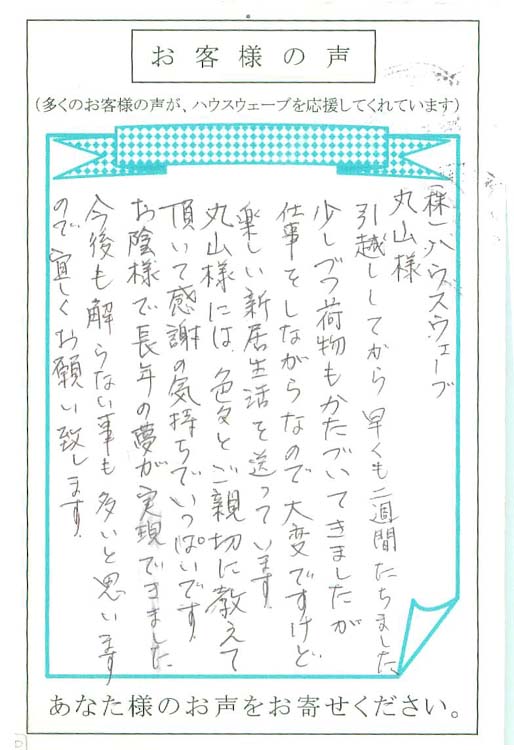 お客様の声
（多くのお客様の声が、ハウスウェーブを応援してくれています）
（株）ハウスウェーブ
丸山様
引越ししてから早くも二週間たちました、
少しづつ荷物もかたづいてきましたが
仕事をしながらなので大変ですけど
楽しい新居生活を送っています。
丸山様には、色々とご親切に教えて
頂いて感謝の気持ちでいっぱいです。
お陰様で長年の夢が実現できました
今後も解らない事も多いと思います
ので宜しくお願い致します。
あなた様のお声をお寄せください。